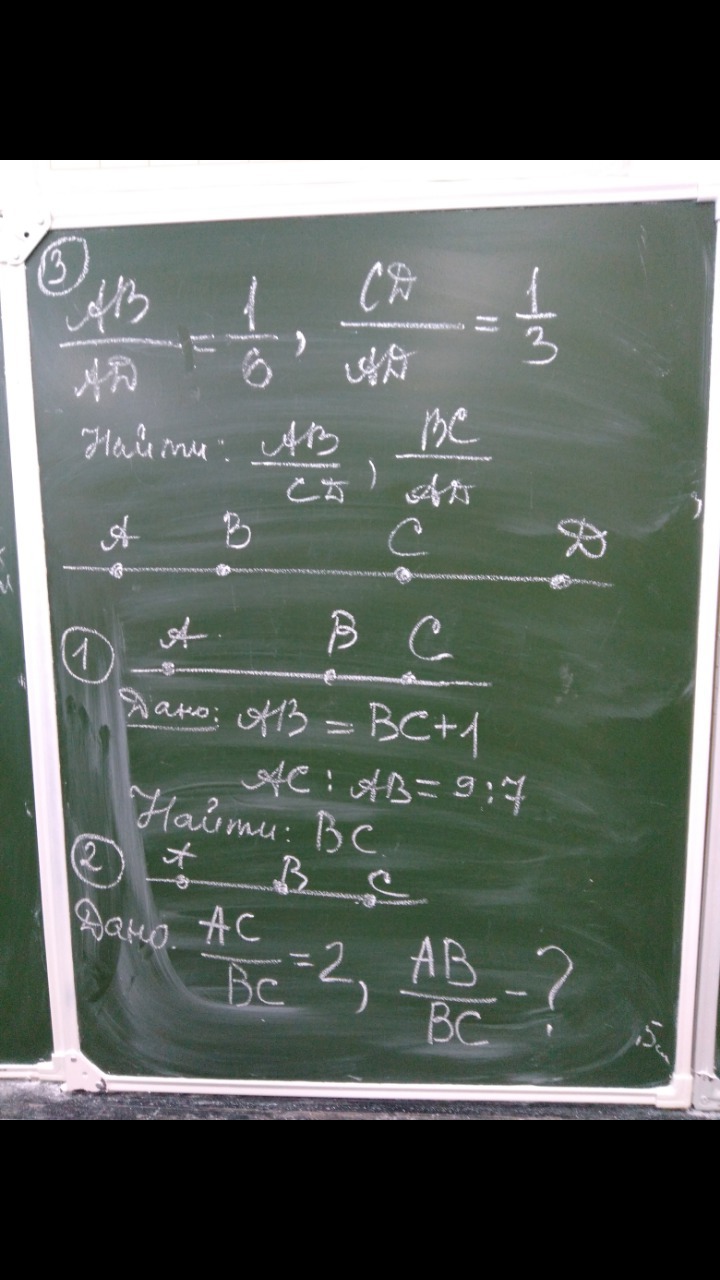 ③
AB/AD = 1/6, CD/AD = 1/3
Найти: AB/CD, BC/AD
A B C D
① A B C
Дано: AB = BC+1
AC : AB = 9:7
Найти: BC
② A B C
Дано. AC/BC = 2, AB/BC - ?